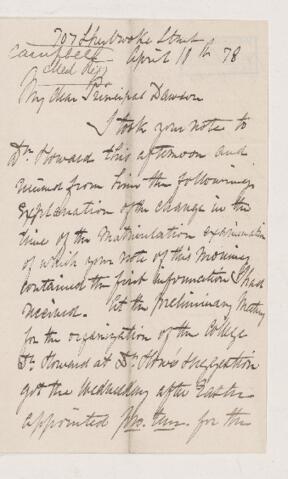 707 Sherbrooke Street
Campbell
Med Reg
April 11th 78
My dear Principal Dawson
I took your note to
Dr. Howard this afternoon and
received from him the following
explanation of the change in the
time of the Matriculation examination
of which your note of this morning
contained the first information I had
received. At the preliminary Meeting
for the organization of the College
Dr. Howard at Dr. Howe's suggestion
got the Wednesday after Easter
appointed pro. tem. for the